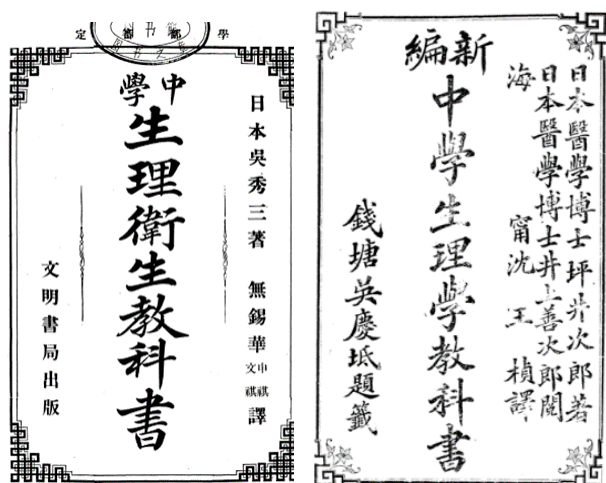 學部審定
日本吳秀三著 無錫華申祺文祺譯
中學
生理衛生教科書
文明書局出版
日本醫學博士坪井次郎著
日本醫學博士井上善次郎閱
海甯沈王楨譯
新編
中學生理學教科書
錢塘吳慶坻題籤